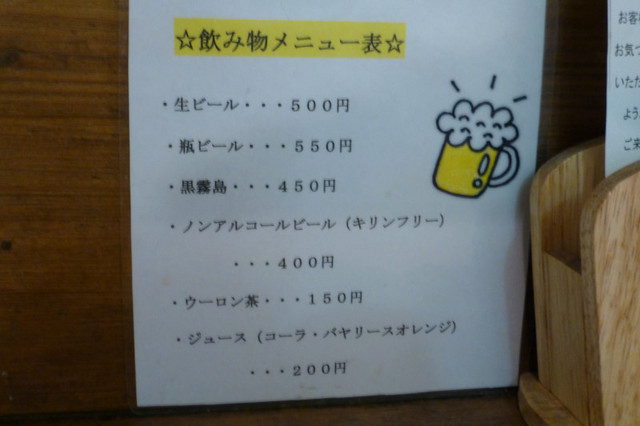 ☆飲み物メニュー表☆
・生ビール・・・５００円
・瓶ビール・・・５５０円
・黒霧島・・・４５０円
・ノンアルコールビール（キリンフリー）
・・・４００円
・ウーロン茶・・・１５０円
・ジュース（コーラ・バヤリースオレンジ）
・・・２００円
お客
お気づ
いただ
よう
ご来